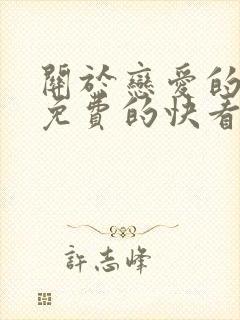 關於戀愛的
免費的快看
許志峰